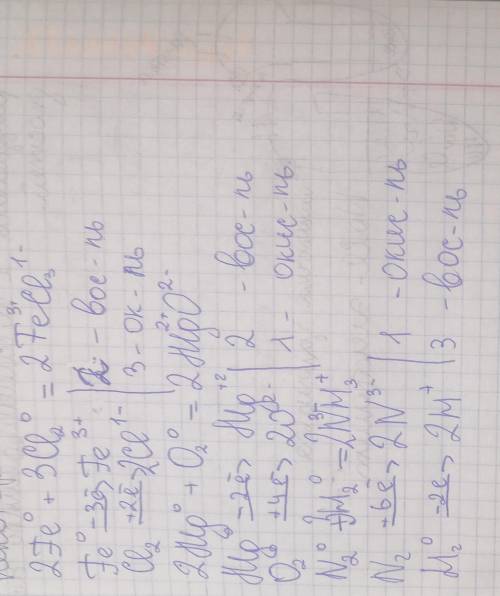 2Fe⁰ + 3Cl₂⁰ = 2Fe³⁺Cl₃¹⁻
Fe⁰ -3e̅> Fe³⁺ | 2 - вос-ль
Cl₂⁰ +2e̅> 2Cl¹⁻ | 3 - ок-ль
2Hg⁰ + O₂⁰ = 2Hg²⁺O²⁻
Hg⁰ -2e̅> Hg⁺² | 2 - вос-ль
O₂⁰ +4e̅> 2O²⁻ | 1 - окис-ль
N₂⁰ + 3H₂⁰ = 2N³⁻H₃⁺
N₂ +6e̅> 2N³⁻ | 1 - окис-ль
H₂⁰ -2e̅> 2H⁺ | 3 - вос-ль